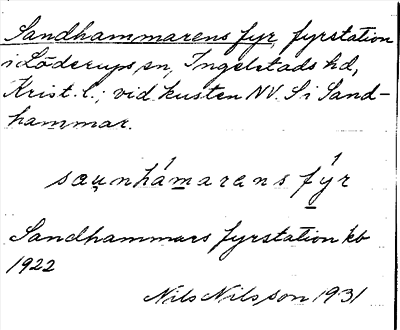 Sandhammarens fyr, fyrstation
i Löderups sn, Ingelstads hd,
Krist. l.; vid kusten NV. S i Sand-
hammar.
sau̯nhámarens fýr
Sandhammars fyrstation kb
1922
Nils Nilsson 1931